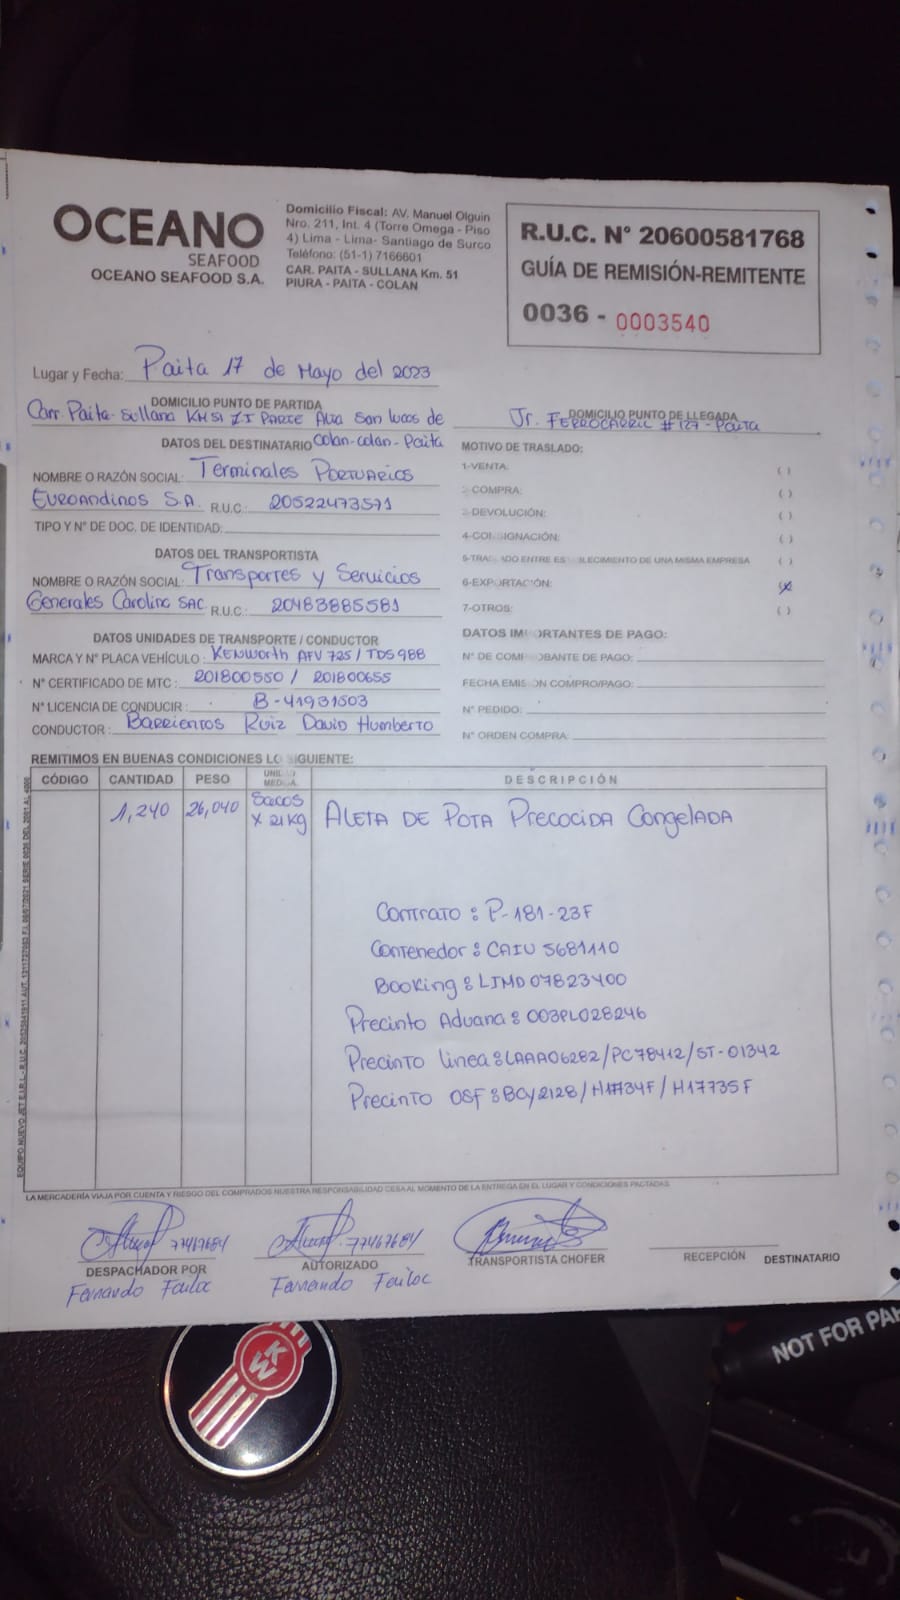 OCEANO
SEAFOOD
OCEANO SEAFOOD S.A.
Domicilio Fiscal: AV. Manuel Olguin
Nro. 211, Int. 4 (Torre Omega - Piso
4) Lima - Lima- Santiago de Surco
Teléfono: (51-1) 7166601
CAR. PAITA - SULLANA Km. 51
PIURA - PAITA - COLAN
R.U.C. N° 20600581768
GUÍA DE REMISIÓN-REMITENTE
0036 - 0003540
Lugar y Fecha: Paita 17 de Mayo del 2023
DOMICILIO PUNTO DE PARTIDA
Carr. Paita-Sullana KM51 Z I Parte Alta San Lucas de
Colan-Colan-Paita
DOMICILIO PUNTO DE LLEGADA
Jr. FERROCARRIL #127 - Paita
DATOS DEL DESTINATARIO
NOMBRE O RAZÓN SOCIAL: Terminales Portuarios
Euroandinos S.A. R.U.C. 20522473571
TIPO Y N° DE DOC. DE IDENTIDAD:
DATOS DEL TRANSPORTISTA
NOMBRE O RAZÓN SOCIAL: Transportes y Servicios
Generales Carolina SAC R.U.C.: 20483885581
DATOS UNIDADES DE TRANSPORTE / CONDUCTOR
MARCA Y N° PLACA VEHÍCULO: Kenworth AFV 725 / TDS 988
N° CERTIFICADO DE MTC: 201800550 / 201800655
N° LICENCIA DE CONDUCIR: B-41931503
CONDUCTOR: Barrientos Ruiz David Humberto
MOTIVO DE TRASLADO:
1-VENTA: ( )
2-COMPRA: ( )
3-DEVOLUCIÓN: ( )
4-CONSIGNACIÓN: ( )
5-TRASLADO ENTRE ESTABLECIMIENTO DE UNA MISMA EMPRESA ( )
6-EXPORTACIÓN: (X)
7-OTROS: ( )
DATOS IMPORTANTES DE PAGO:
N° DE COMPROBANTE DE PAGO:
FECHA EMISIÓN COMPRO/PAGO:
N° PEDIDO:
N° ORDEN COMPRA:
REMITIMOS EN BUENAS CONDICIONES LO SIGUIENTE:
CÓDIGO CANTIDAD PESO UNIDAD MEDIDA DESCRIPCIÓN
1,240 26,040 Sacos x 21Kg ALETA DE POTA PRECOCIDA CONGELADA
Contrato: P-181-23F
Contenedor: CAIU 5681110
Booking: LIMD07823400
Precinto Aduana: 003PL028246
Precinto línea: LAAA06282/PC78412/ST-01342
Precinto OSF: BCY2128/ /H17735F
LA MERCADERÍA VIAJA POR CUENTA Y RIESGO DEL COMPRADOS NUESTRA RESPONSABILIDAD CESA AL MOMENTO DE LA ENTREGA EN EL LUGAR Y CONDICIONES PACTADAS.
77467684
DESPACHADOR POR
Fernando
77467684
AUTORIZADO
Fernando
TRANSPORTISTA CHOFER
RECEPCIÓN DESTINATARIO
KW
NOT FOR